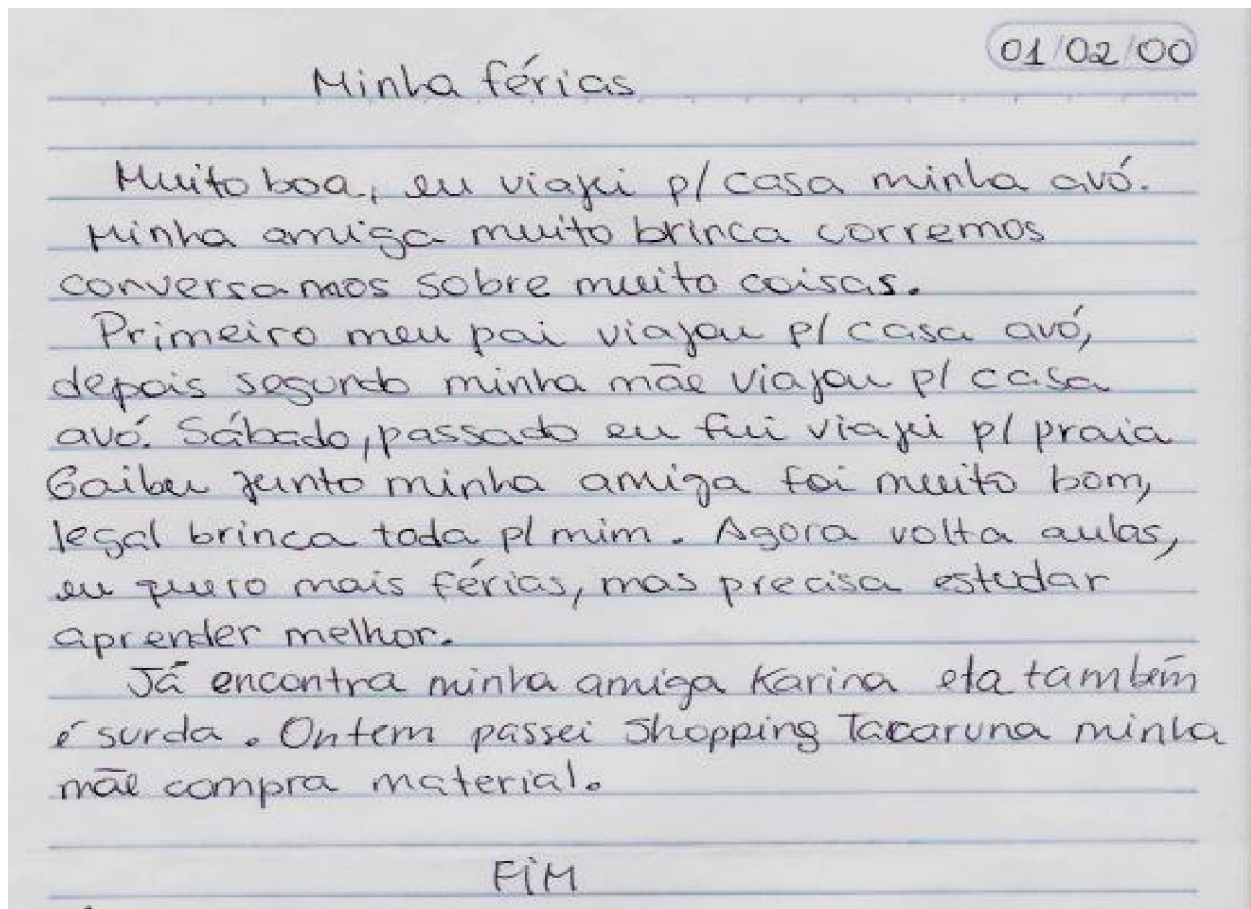 01/02/00
Minha férias
Muito boa, eu viajei p/ casa minha avó.
Minha amiga muito brinca corremos
conversamos sobre muito coisas.
Primeiro meu pai viajou p/ casa avó,
depois segundo minha mãe viajou p/ casa
avó. Sábado, passado eu fui viajei p/ praia
Gaibu junto minha amiga foi muito bom,
legal brinca toda p/ mim. Agora volta aulas,
eu quero mais férias, mas precisa estudar
aprender melhor.
Já encontra minha amiga Karina ela também
é surda. Ontem passei Shopping Tacaruna minha
mãe compra material.
FIM